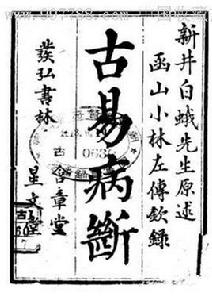 新井白蛾先生原述
函山小林左傳欽錄
古易病斷
發弘書林
古章堂
星文堂